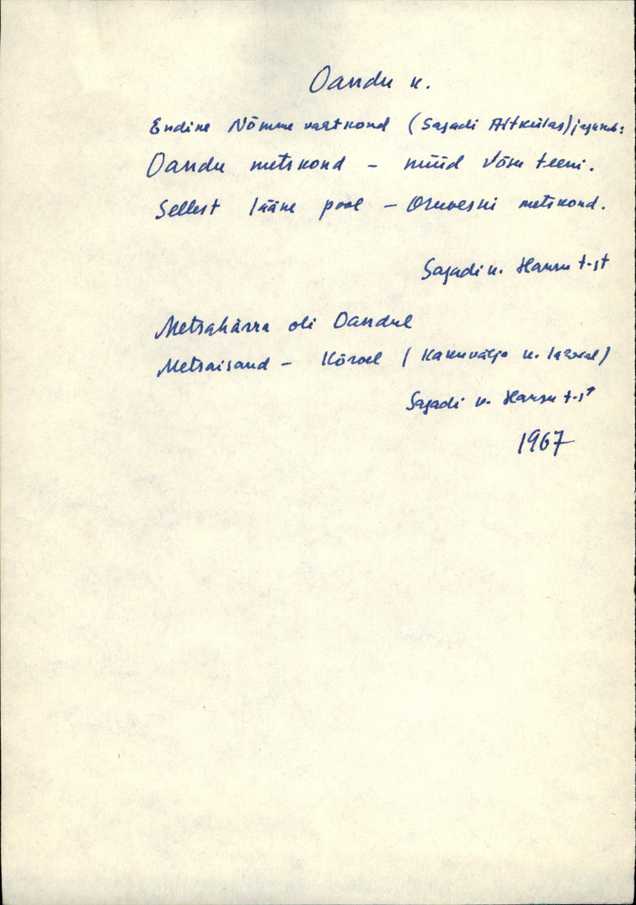 Oandu k.
Endine Nõmme vahtkond (Sagadi Altkülas) jagunes:
Oandu metskond – nüüd Võsu teeni.
Sellest lääne pool – Oruveski metskond.
Sagadi k. Hansu t-st
Metsahärra oli Oandul
Metsaisand – Kõrvel (Kakuvälja k. lähedal)
Sagadi k. Hansu t-st
1967